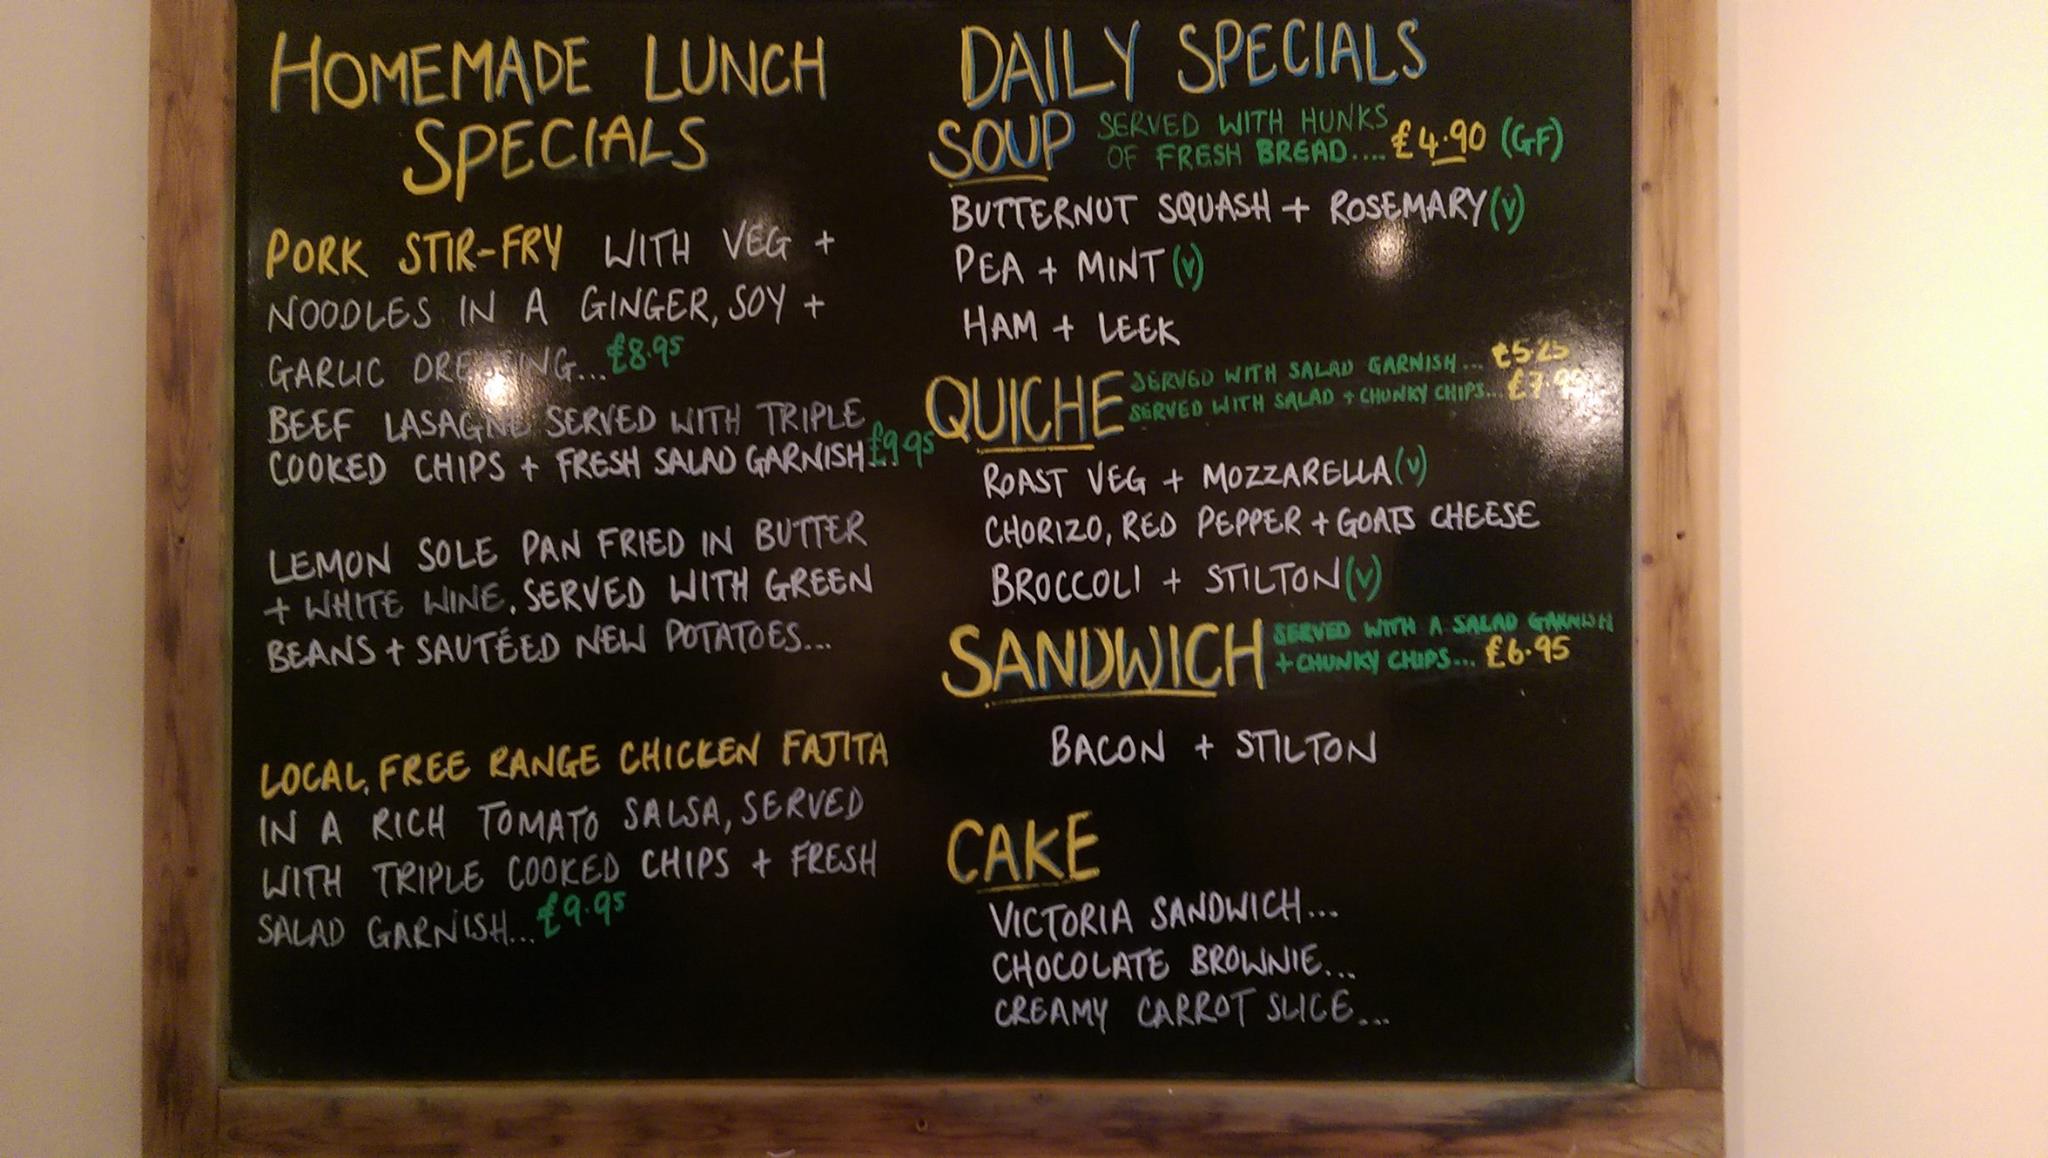 HOMEMADE LUNCH
SPECIALS
PORK STIR-FRY WITH VEG +
NOODLES IN A GINGER, SOY +
GARLIC DRESSING... £8.95
BEEF LASAGNE SERVED WITH TRIPLE
COOKED CHIPS + FRESH SALAD GARNISH... £9.95
LEMON SOLE PAN FRIED IN BUTTER
+ WHITE WINE, SERVED WITH GREEN
BEANS + SAUTÉED NEW POTATOES...
LOCAL, FREE RANGE CHICKEN FAJITA
IN A RICH TOMATO SALSA, SERVED
WITH TRIPLE COOKED CHIPS + FRESH
SALAD GARNISH... £9.95
DAILY SPECIALS
SOUP SERVED WITH HUNKS
OF FRESH BREAD.... £4.90 (GF)
BUTTERNUT SQUASH + ROSEMARY (V)
PEA + MINT (V)
HAM + LEEK
QUICHE SERVED WITH SALAD GARNISH... £5.25
SERVED WITH SALAD + CHUNKY CHIPS... £7.95
ROAST VEG + MOZZARELLA (V)
CHORIZO, RED PEPPER + GOATS CHEESE
BROCCOLI + STILTON (V)
SANDWICH SERVED WITH A SALAD GARNISH
+ CHUNKY CHIPS... £6.95
BACON + STILTON
CAKE
VICTORIA SANDWICH...
CHOCOLATE BROWNIE...
CREAMY CARROT SLICE...